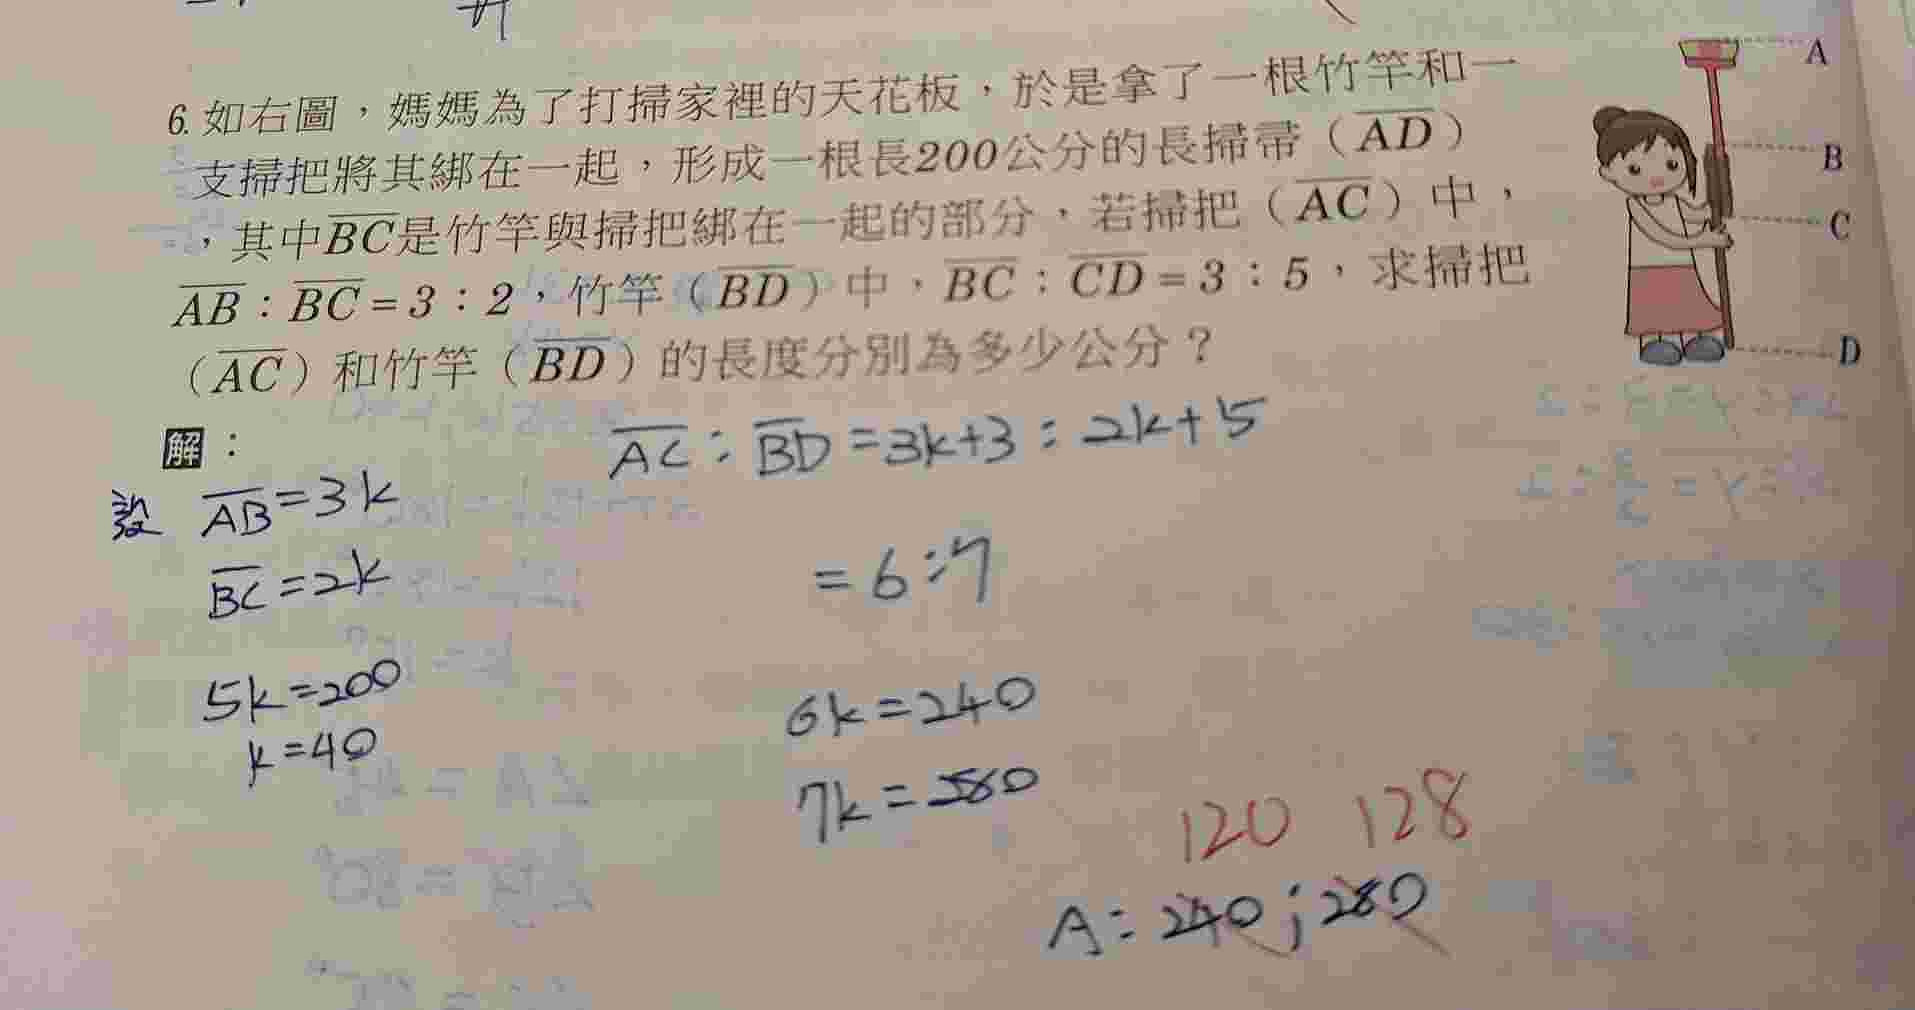 6. 如右圖，媽媽為了打掃家裡的天花板，於是拿了一根竹竿和一
支掃把將其綁在一起，形成一根長200公分的長掃帚（AD）
，其中BC是竹竿與掃把綁在一起的部分，若掃把（AC）中，
AB：BC=3：2，竹竿（BD）中，BC：CD=3：5，求掃把
（AC）和竹竿（BD）的長度分別為多少公分？
A
B
C
D
解：
AC：BD=3k+3：2k+5
設 AB=3k
BC=2k
=6:7
5k=200
k=40
6k=240
7k=280
120 128
A：240；280